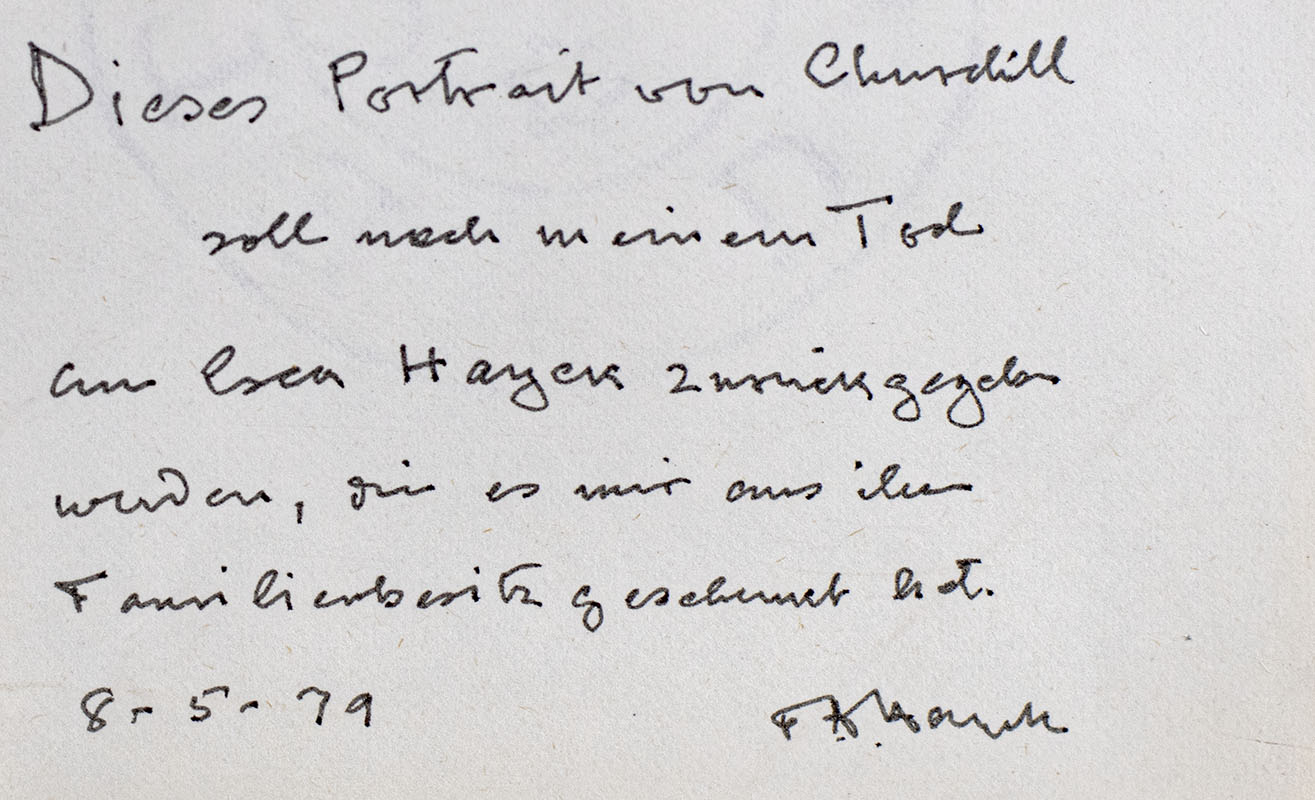 Dieses Portrait von Churchill
soll nach meinem Tod
an Esca Hayek zurückgegeben
werden, die es mir aus ihrem
Familienbesitz geschenkt hat.
8-5-79 F A Hayek